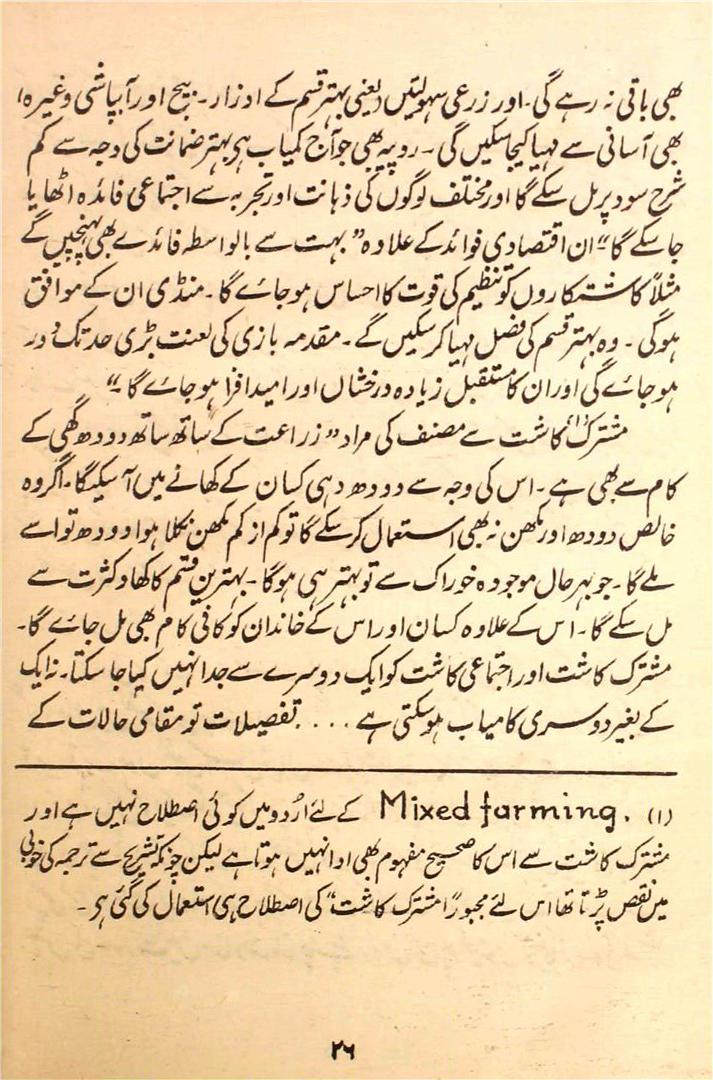 بھی باقی نہ رہے گی۔ اور زرعی سہولتیں (یعنی بہتر قسم کے اوزار۔ بیج اور آبپاشی وغیرہ)
بھی آسانی سے مہیا کیجا سکیں گی۔ روپیہ بھی جو آج کمیاب ہی بہتر ضمانت کی وجہ سے کم
شرح سود پر مل سکے گا اور مختلف لوگوں کی ذہانت اور تجربہ سے اجتماعی فائدہ اٹھایا
جا سکے گا" ان اقتصادی فوائد کے علاوہ "بہت سے بالواسطہ فائدے بھی پہنچیں گے
مثلاً کاشتکاروں کو تنظیم کی قوت کا احساس ہو جائے گا۔ منڈی ان کے موافق
ہوگی۔ وہ بہتر قسم کی فصل مہیا کر سکیں گے۔ مقدمہ بازی کی لعنت بڑی حد تک دور
ہو جائے گی اور ان کا مستقبل زیادہ درخشاں اور امید افزا ہو جائے گا۔"
مشترک (۱) کاشت سے مصنف کی مراد "زراعت کے ساتھ ساتھ دودھ گھی کے
کام سے بھی ہے۔ اس کی وجہ سے دودھ دہی کسان کے کھانے میں آ سکیگا۔ اگر وہ
خالص دودھ اور مکھن نہ بھی استعمال کر سکے گا تو کم از کم مکھن نکلا ہوا دودھ تو اسے
ملے گا۔ جو بہرحال موجودہ خوراک سے تو بہتر ہی ہوگا۔ بہترین قسم کا کھاد کثرت سے
مل سکے گا۔ اس کے علاوہ کسان اور اس کے خاندان کو کافی کام بھی مل جائے گا۔
مشترک کاشت اور اجتماعی کاشت کو ایک دوسرے سے جدا نہیں کیا جا سکتا۔ نہ ایک
کے بغیر دوسری کامیاب ہو سکتی ہے .... تفصیلات تو مقامی حالات کے
(۱) Mixed farming. کے لئے اردو میں کوئی اصطلاح نہیں ہے اور
مشترک کاشت سے اس کا صحیح مفہوم بھی ادا نہیں ہوتا ہے لیکن چونکہ تشریح سے ترجمہ کی خوبی
میں نقص پڑتا تھا اس لئے مجبوراً "مشترک کاشت" کی اصطلاح ہی استعمال کی گئی ہی۔
۲۶